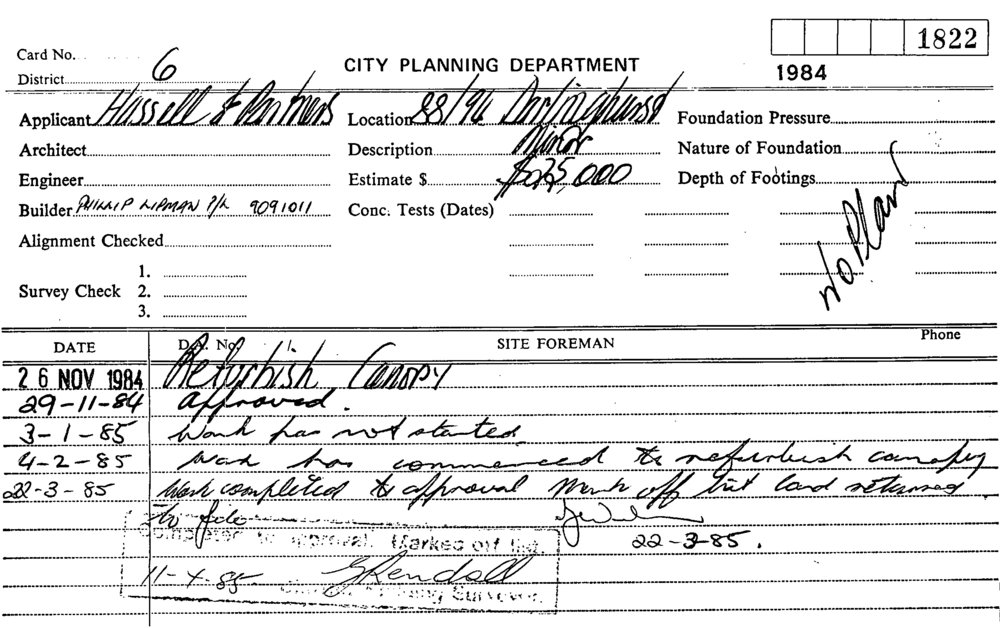 1822
Card No.
District 6
CITY PLANNING DEPARTMENT
1984
Applicant Hassell & Partners Location 88/96 Darlinghurst Foundation Pressure
Architect Description Minor Nature of Foundation
Engineer Estimate $ $25,000 Depth of Footings
Builder PHILLIP LIPMAN P/L 9091011 Conc. Tests (Dates)
No Plans
Alignment Checked
1.
Survey Check 2.
3.
DATE D.A. No. /. SITE FOREMAN Phone
26 NOV 1984 Refurbish Canopy
29-11-84 approved.
3-1-85 Work has not started
4-2-85 Work has commenced to refurbish canopy
22-3-85 Work completed to approval Mark off list card returned
to file
22-3-85.
Completed to approval. Marked off list
11-4-85 Kendall
Building Surveyor.